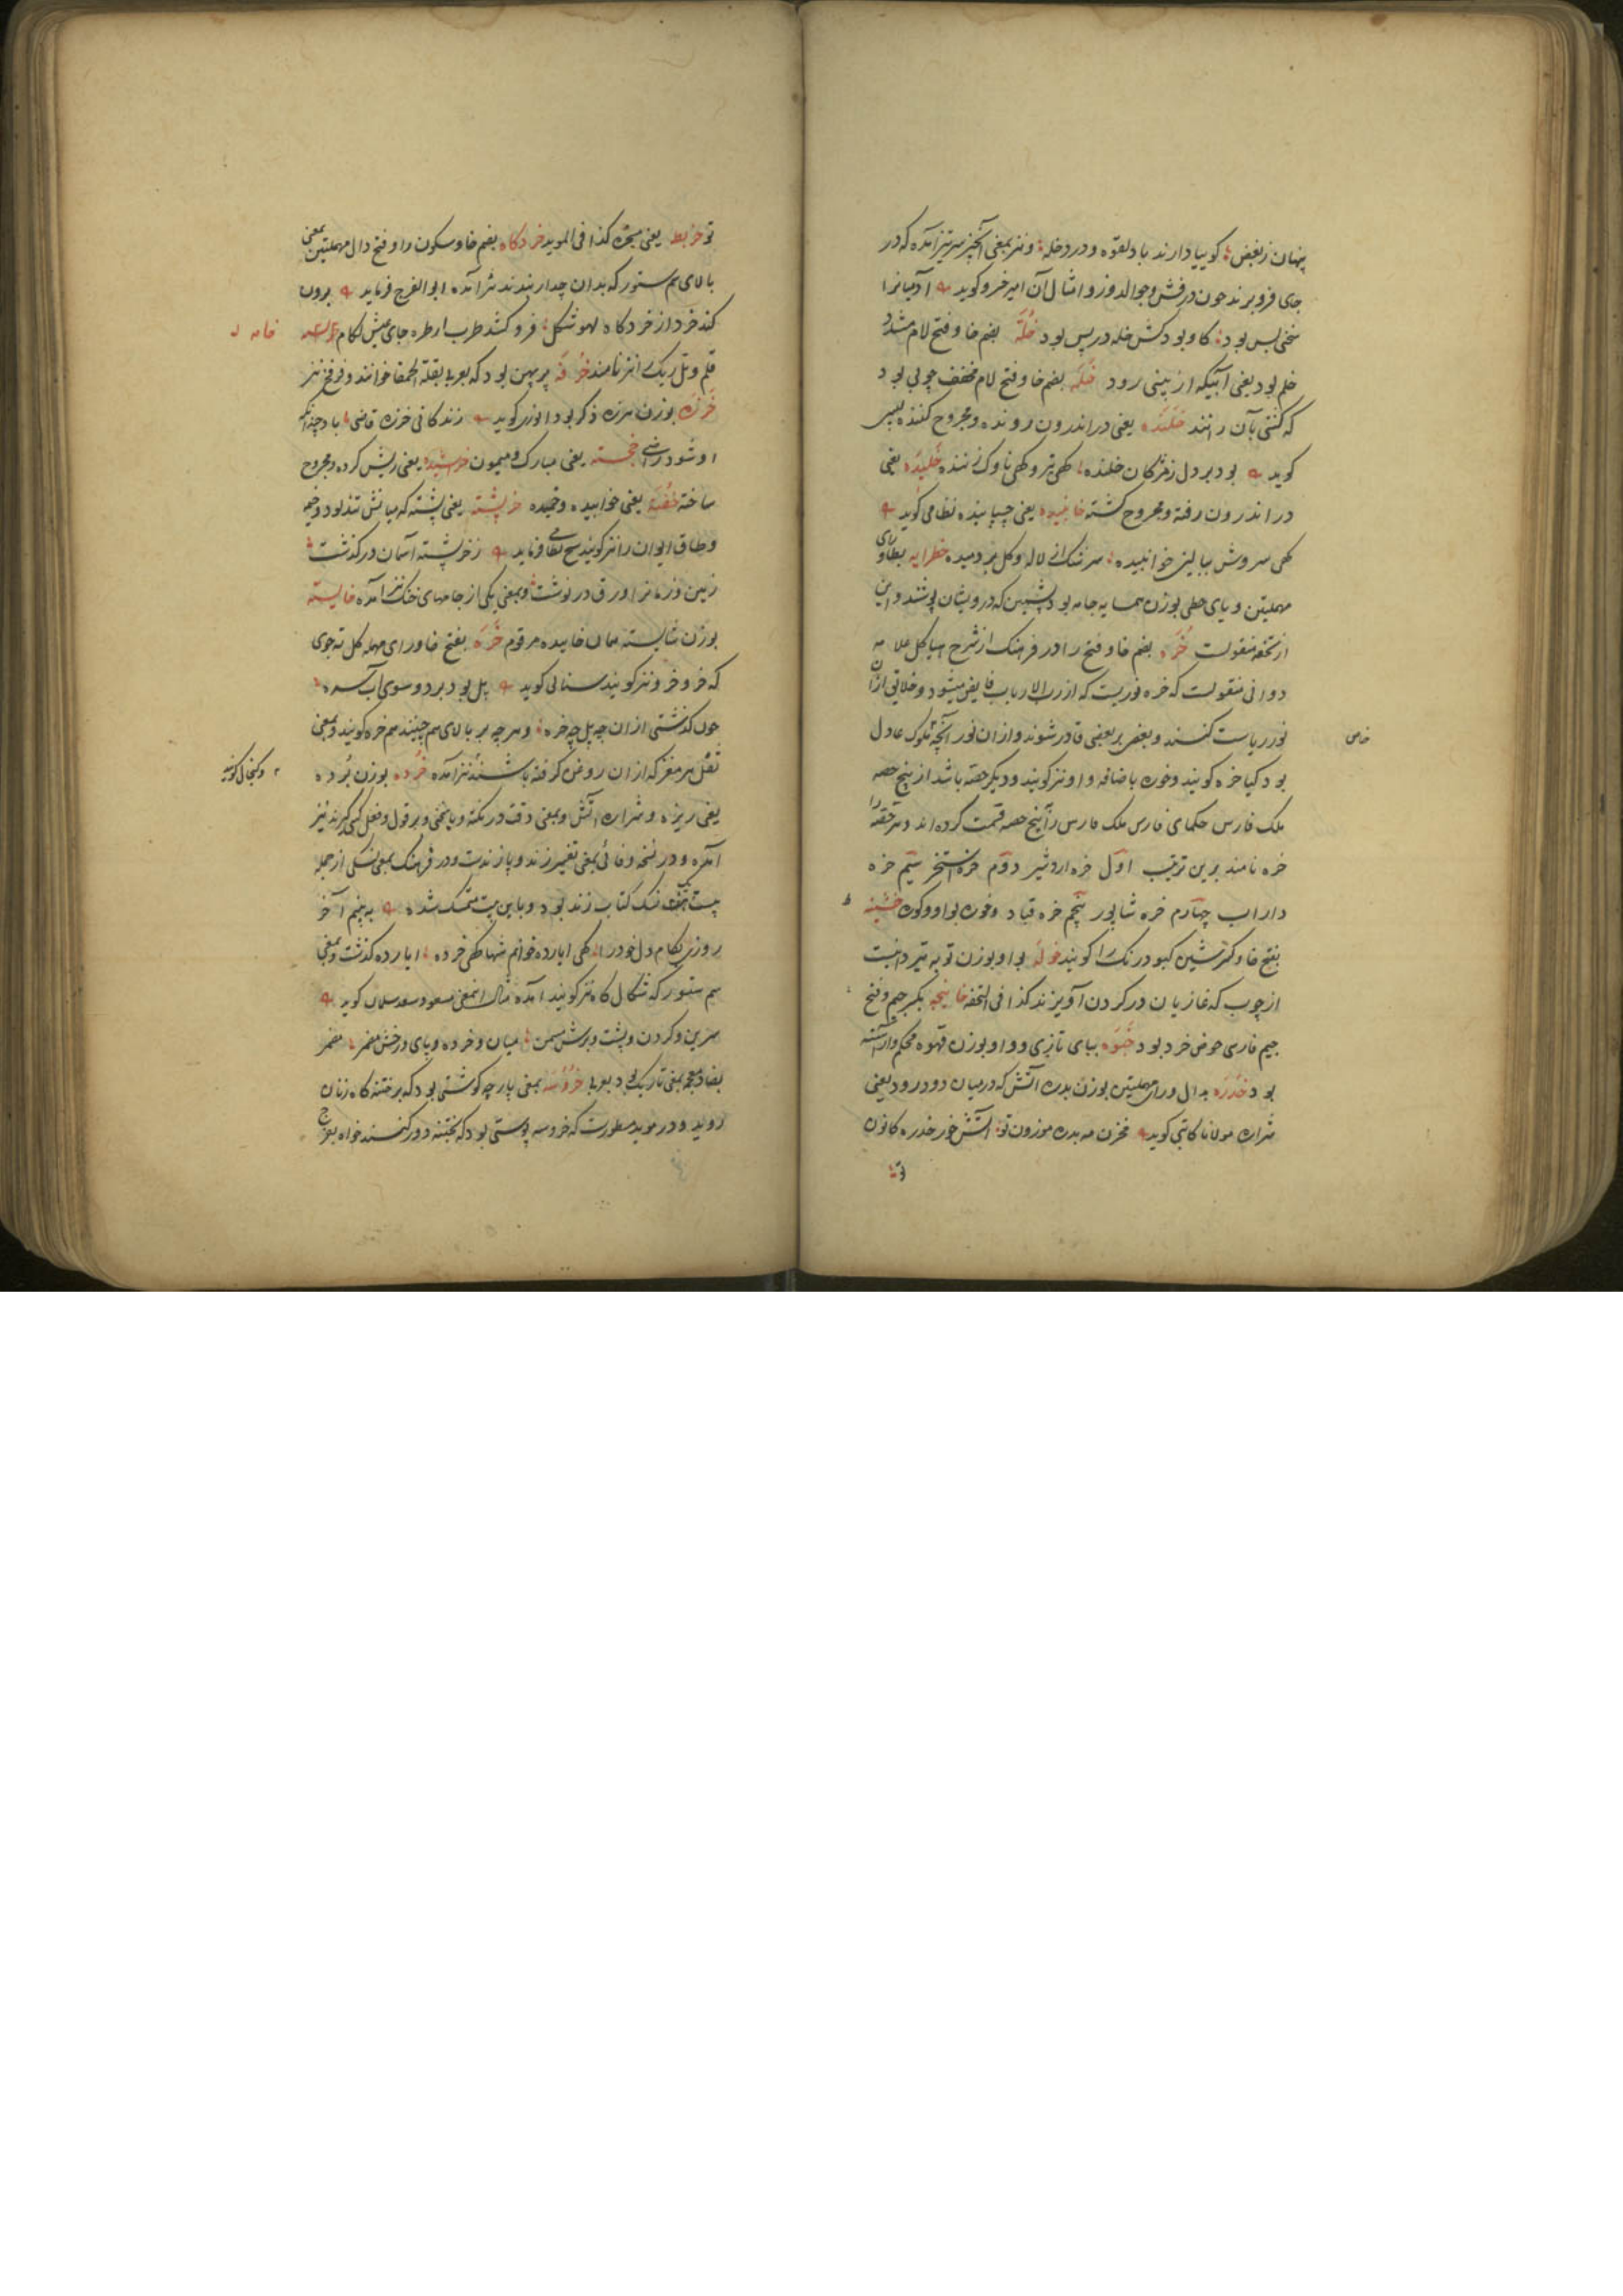 پنهان ز بغض گوییا دارند باد لقوه و درد خله و نیز بمعنی آنچیز سر تیز آمده که در
جای فرو برند چون درفش و جوالدوز و امثال آن امیر خسرو کوید آدمیانرا
سخنی بس بود کاو بود کش خله در پس بود خُلّه بضم خا و فتح لام مشدد
خلم بود یعنی آبیکه از بینی رود خُلَه بضم خا و فتح لام مخفف چوبی بود
که کشتی بآن رانند خلنده یعنی در اندرون رونده و مجروح کننده
کوید بود بر دل ز مژکان خلنده کهی تیر و کهی ناوک زننده خلیده یعنی
در اندرون رفته و مجروح کشته خانیده یعنی چسپانیده نظامی کوید
کهی سروش ببالین خوابیده سرشک از لاله و کل بر دمیده خطرایه بطا و رای
مهملتین و یای حطی بوزن همسایه جامه بود پشمین که درویشان پوشند و این
از تحفه منقولست خُرّه بضم خا و فتح را در فرهنک از شرح هیاکل علامه
دوانی منقولست که خره نوریست که از رب الارباب فایض میشود و خلایق ازان
نور ریاست کنند و بعضی بر بعضی قادر شوند و از ان نور آنچه بملوک عادل
خاص
بود کیا خره کویند و خوره باضافه واو نیز کویند و دیکر حصه باشد از پنج حصه
ملک فارس حکمای فارس ملک فارس را پنج حصه قسمت کرده اند و هر حصه را
خره نامند برین ترتیب اوّل خره اردشیر دوّم خره استخر سیّم خره
داراب چهارم خره شاپور پنجم خره قباد و خوره بواو و کوره خشینه
بفتح خا و کسر شین کبود رنک را کویند خوله بواو بوزن توبه تیردانیست
از چوب که غازیان در کردن آویزند کذا فی التحفه خانیچه بکسر جیم و فتح
جیم فارسی حوض خرد بود خبوه ببای تازی و واو بوزن قهوه محکم و آراسته
بود خدره بدال و رای مهملتین بوزن بدره آتش که در میان دود رود یعنی
شراره مولانا کاتبی کوید مخزن مه بدره موزون تو آتش خور خدره کانون
تو
تو خربط یعنی مجره کذا فی الموید خردکاه بضم خا و سکون را و فتح دال مهملتین بمعنی
بالای سم ستور که بدان چدار بندند نیز آمده ابو الفرج فرماید برون
کند خرد از خردکاه لهو شکل فرو کشد طرب از طره جای عیش لکام
خامه
قلم و تل ریک را نیز نامند خرفه پرپهن بود که بعربی بقلة الحمقا خوانند و فرفخ نیز
خرزه بوزن هرزه ذکر بود انوری کوید زندکانی خرزه قاضی باد چندانکه
او شود راضی خجسته یعنی مبارک و میمون خراشیده یعنی ریش کرده و مجروح
ساخته خفته یعنی خوابیده و خمیده خرپشته یعنی پشته که میانش تند بود و خیمه
و طاق ایوان را نیز کویند شیخ نظامی فرماید ز خرپشته آسمان در گذشت
زمین و زمانرا ورق در نوشت و بمعنی یکی از جامهای جنک نیز آمده خایسته
بوزن شایسته همان خاییده مرقوم خَرّه بفتح خا و رای مهمله کل ته جوی
که خر و خرو نیز کویند سنایی کوید پل بود بر دو سوی آب سره
چون کذشتی از ان چه پل چه خره و هر چه بر بالای هم چینند هم خره کویند و بمعنی
ثفل هر مغز که از ان روغن کرفته باشند نیز آمده خُرده بوزن بُرده
و کنجال کویند
یعنی ریزه و شراره آتش و بمعنی دقت در نکته و یا سخنی و بر قول و فعل کسی کیرند نیز
آمده و در نسخه وفائی بمعنی تفسیر زند و پازندست و در فرهنک بمعنی نسکی از جمله
بیست و یک نسک کتاب زند بود و باین بیت متمسک شده به بینم آخر
روزی بکام دل خود را کهی ایارده خوانم شها کهی خرده ایارده کذشت و بمعنی
سم ستور که شکال کاه نیز کویند آمده مثال اینمعنی مسعود سعد سلمان کوید
سرین و کردن و پشت و برش مسمن میان و خرده و پای و رخش مضمر مضمر
بضاد معجمه بمعنی باریک بود بعربی خروسه بمعنی پارچه کوشتی بود که بر ختنه کاه زنان
روید و در موید مسطورست که خروسه پوستی بود که بختنه دور کنند خواه بفرج